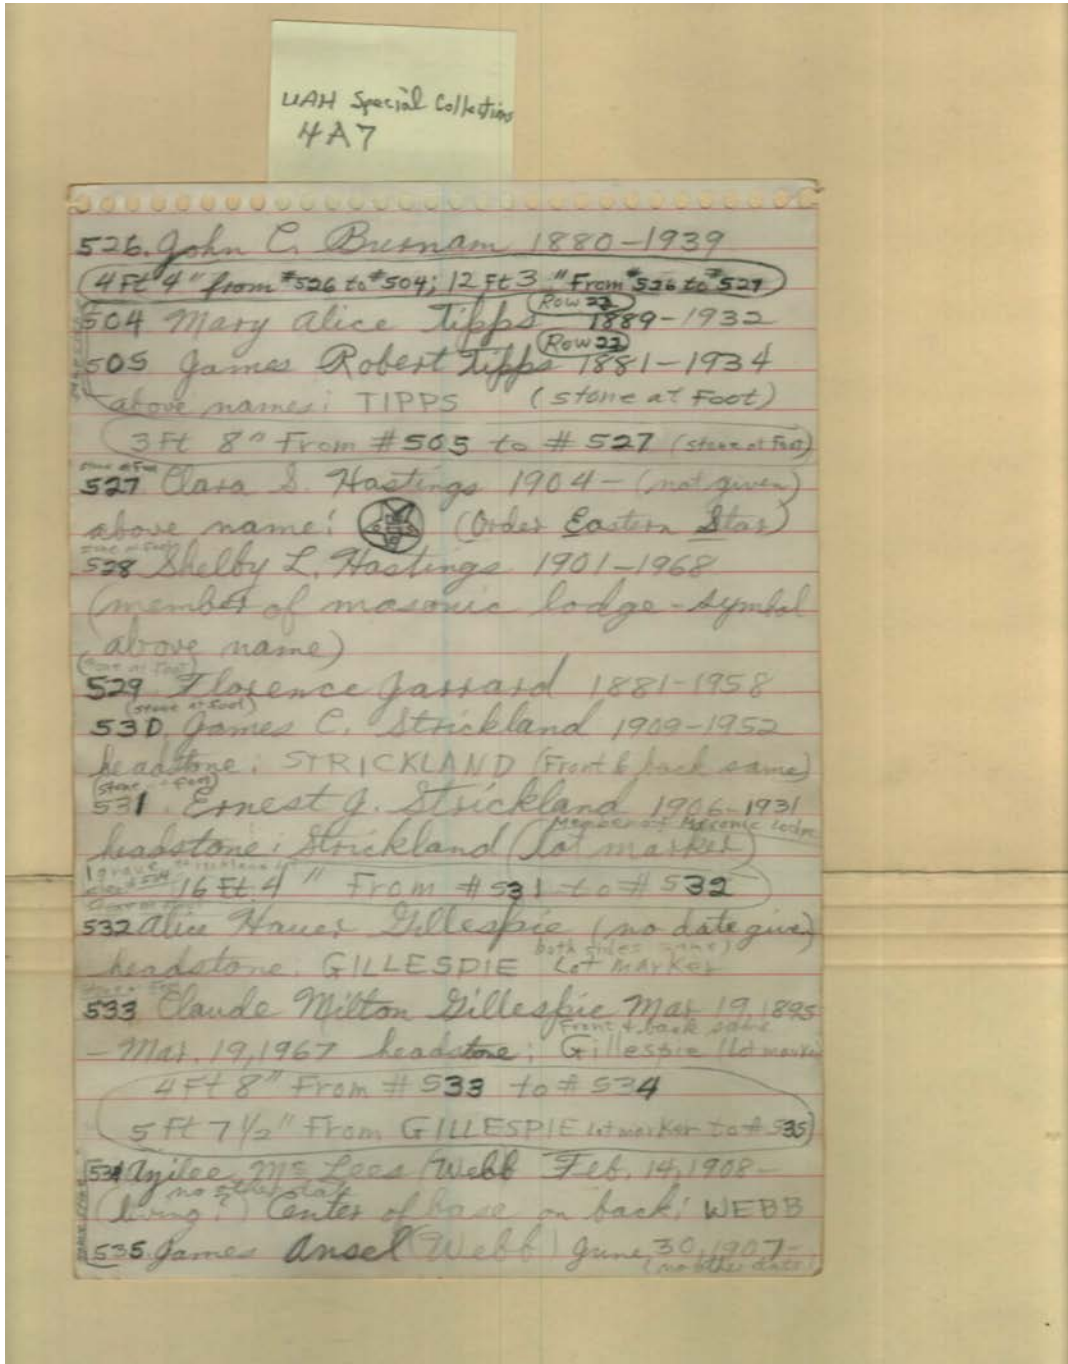 UAH Special Collections
4A7
526. John C. Burnam 1880-1939
4 Ft 4" from #526 to #504; 12 Ft 3" From #526 to #527
(Row 22)
504 Mary Alice Tipps 1889-1932
(Row 22)
505 James Robert Tipps 1881-1934
above names: TIPPS (stone at Foot)
3 Ft 8" From #505 to #527 (stone at Foot)
stone at Foot
527 Clara S. Hastings 1904- (not given)
above name: (Order Eastern Star)
stone at Foot
528 Shelby L. Hastings 1901-1968
(member of masonic lodge - symbol
above name)
(stone at Foot)
529. Florence Jarrard 1881-1958
(stone at Foot)
530. James C. Strickland 1909-1952
headstone: STRICKLAND (Front & back same)
(stone Foot)
531. Ernest J. Strickland 1906-1931
Member of Masonic Lodge
headstone: Strickland (lot marker)
16 Ft. 4" From #531 to #532
532 Alice Hauer Gillespie (no date given)
both sides same)
headstone. GILLESPIE Lot marker
533 Claude Milton Gillespie Mar. 19, 1895
Front & back same
- Mar. 19, 1967 headstone: Gillespie (lot marker
4 Ft 8" From #533 to #534
5 Ft 7 1/2" From GILLESPIE lot marker to #535
534 Azilee McLees (Webb Feb. 14, 1908-
no other date
(living?) Center of base on back: WEBB
535. James Ansel (Webb) June 30, 1907-
(no other date)